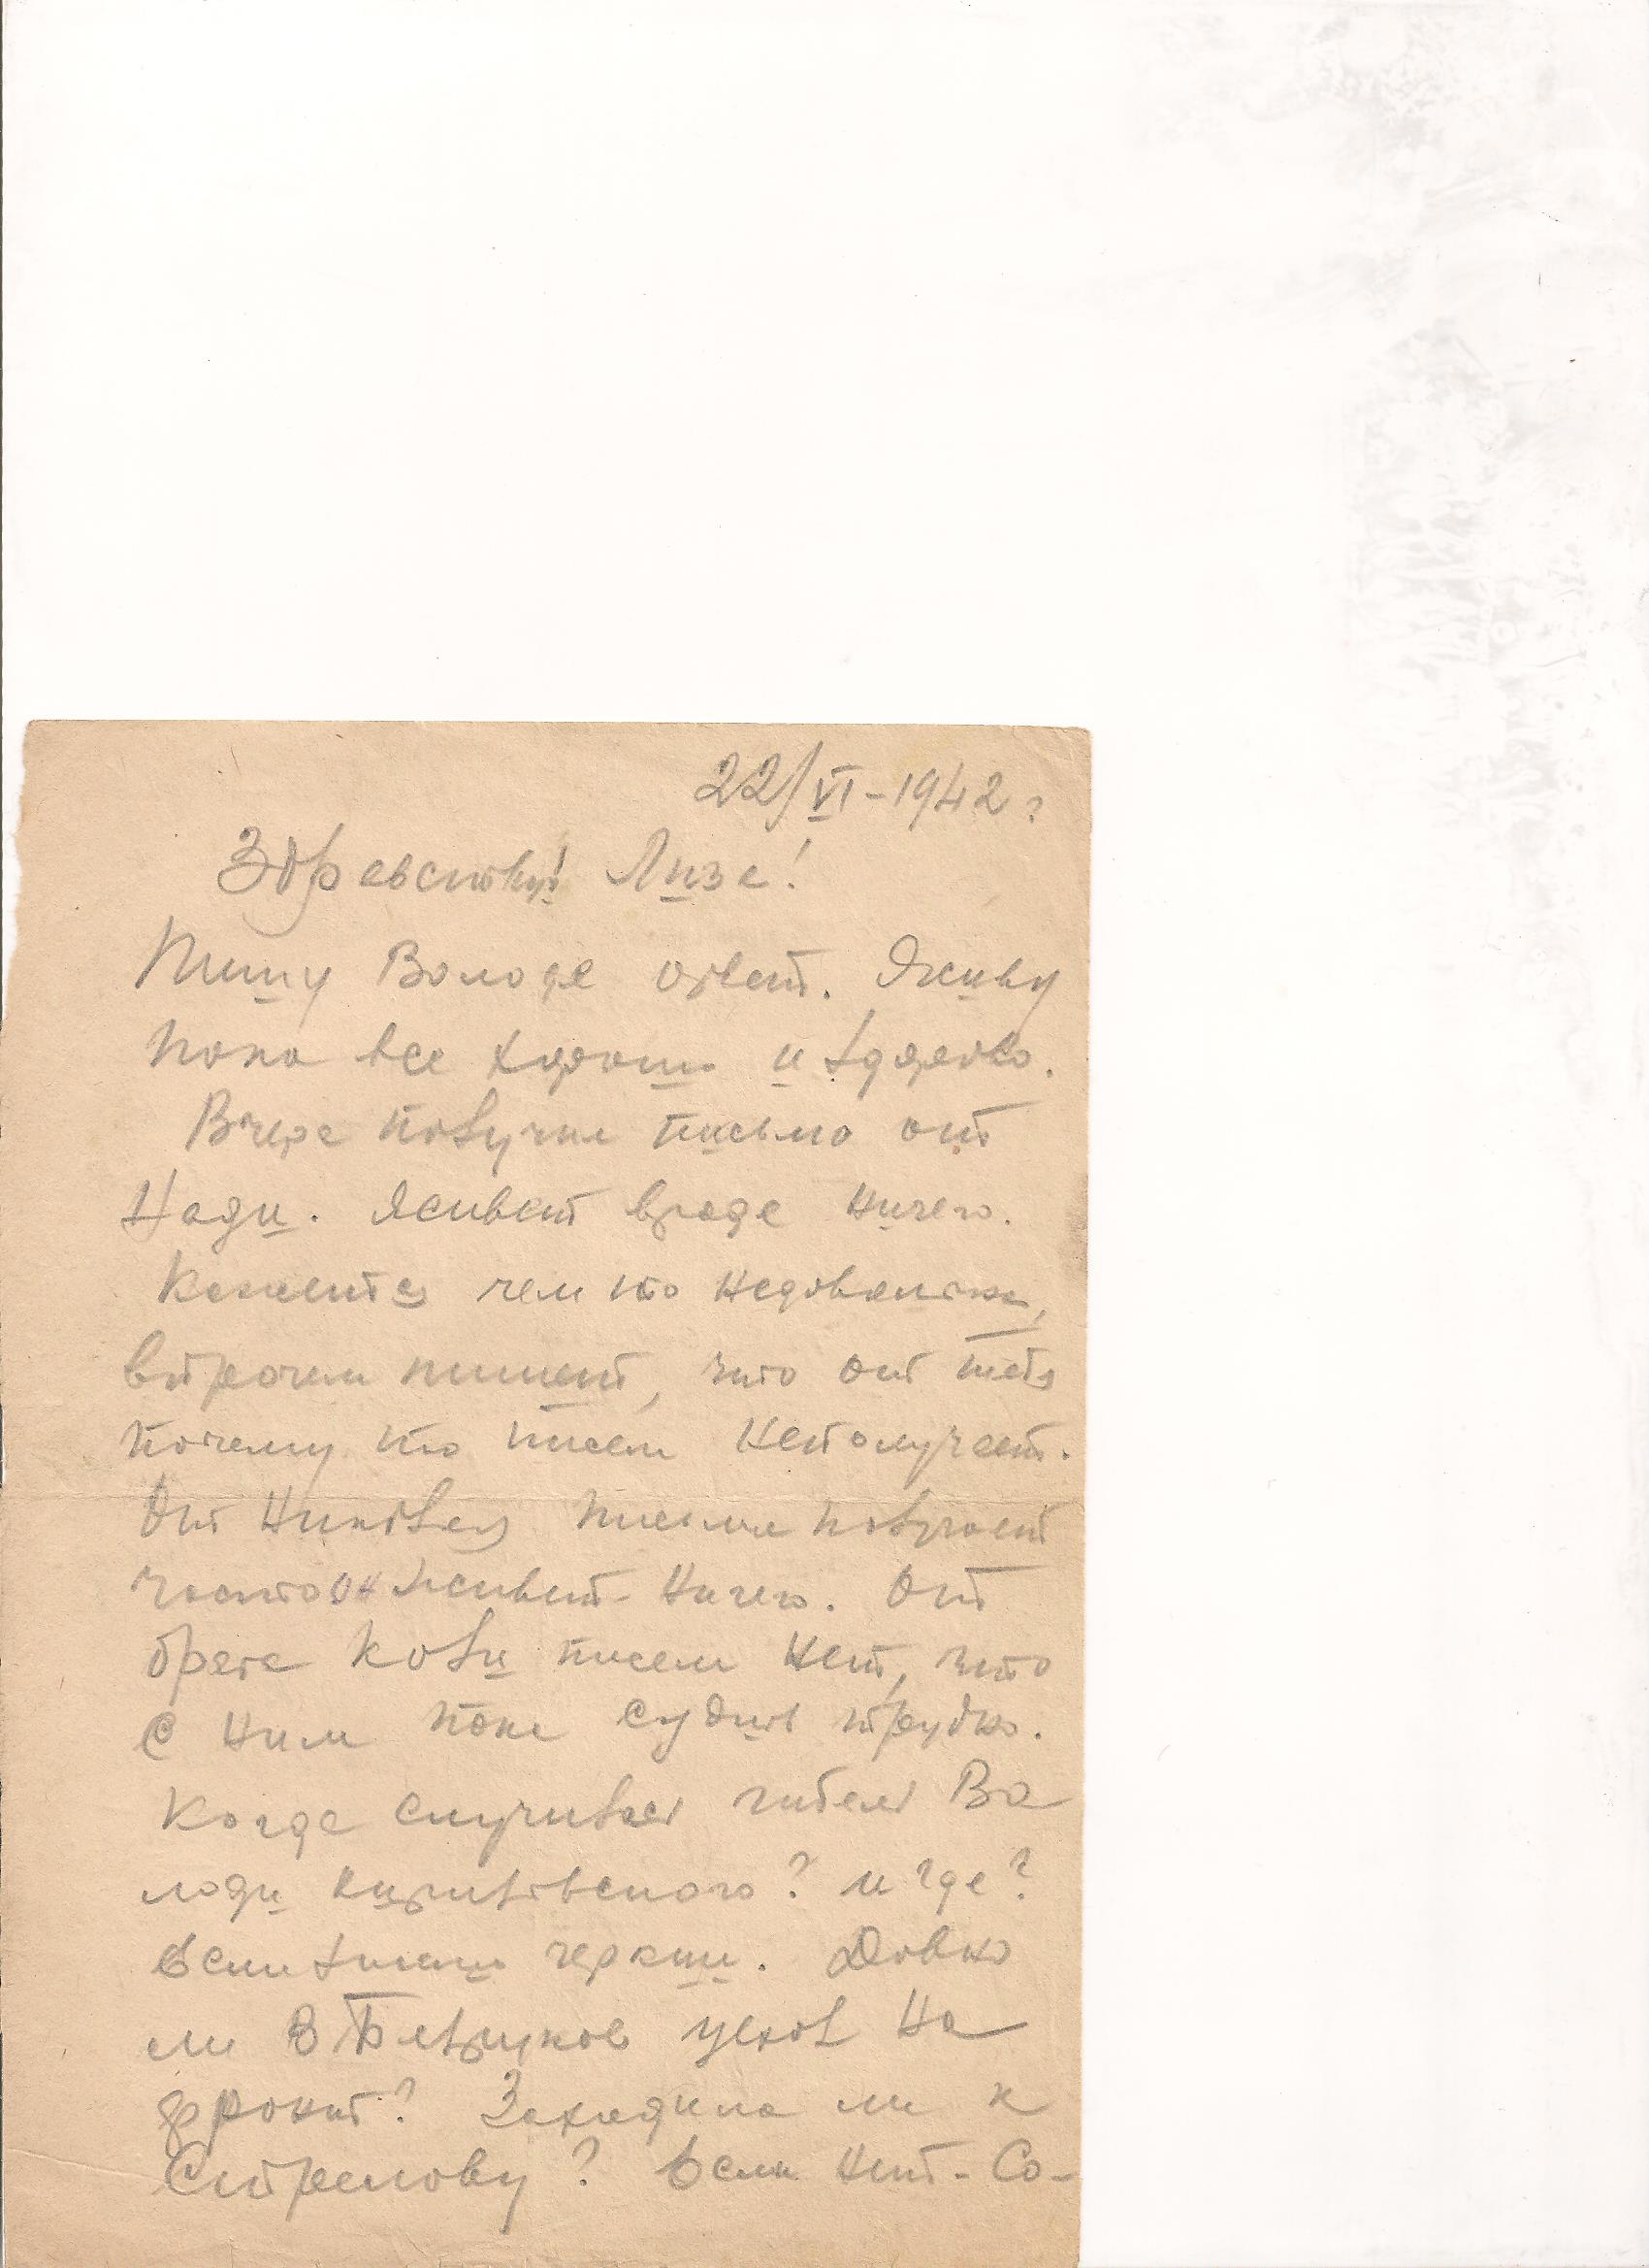 22/VI-1942 г
Здравствуй! Лиза!
Пишу Володе ответ. Я живу
пока все хорошо и здорово.
Вчера получил письмо от
Нади. Живет вроде ничего.
Кажется чем то недовольна,
впрочем пишет, что от тебя
почему то писем неполучает.
От Николая письма получает
часто он живет ничего. От
брата Коли писем нет, что
с ним пока судить трудно.
Когда случилась гибель Во
лоди ? и где?
Если знаешь черкни. Давно
ли В уехал на
фронт? Заходила ли к
Стрелкову? Если нет - Со-